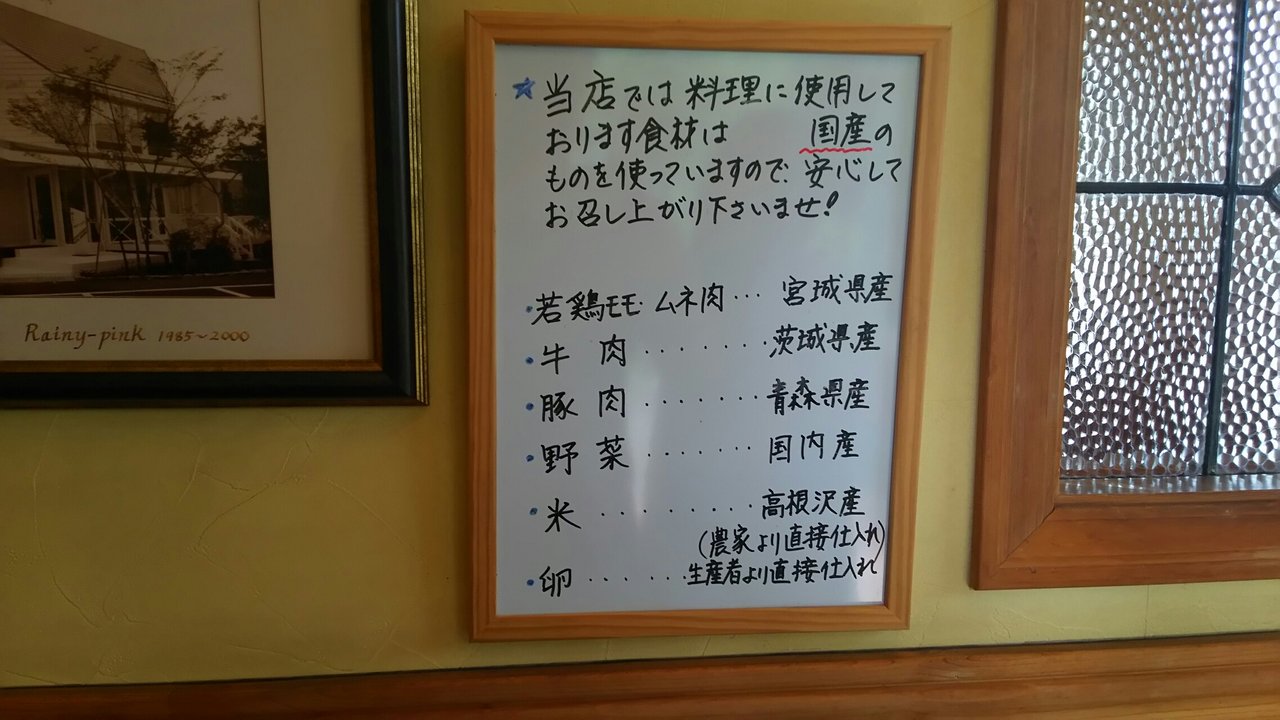 Rainy-pink 1985~2000
☆当店では料理に使用して
おります食材は 国産の
ものを使っていますので、安心して
お召し上がり下さいませ!
・若鶏モモ・ムネ肉… 宮城県産
・牛肉・・・・・・・茨城県産
・豚肉・・・・・・・青森県産
・野菜・・・・・・・国内産
・米・・・・・・・・高根沢産
(農家より直接仕入れ)
・卵・・・・・・生産者より直接仕入れ